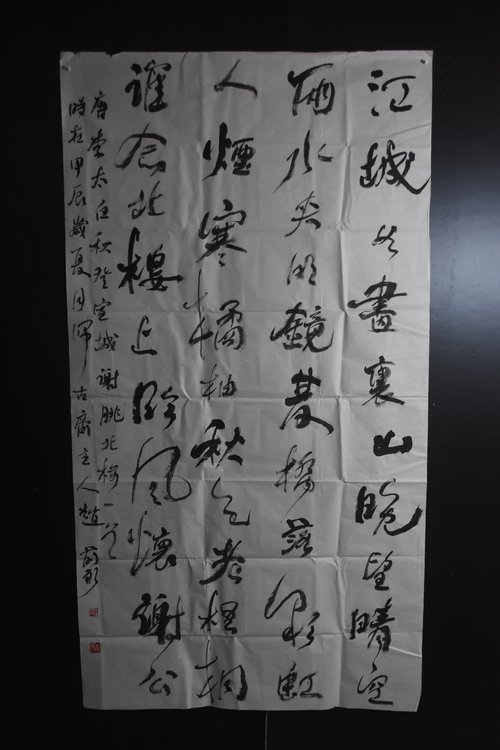 江城如畫裏山晚望晴空
兩水夾明鏡雙橋落彩虹
人煙寒橘柚秋色老梧桐
誰念北樓上臨風懷謝公
唐李太白秋登宣城謝朓北樓一首
時在甲辰歲夏月古齋主人趙